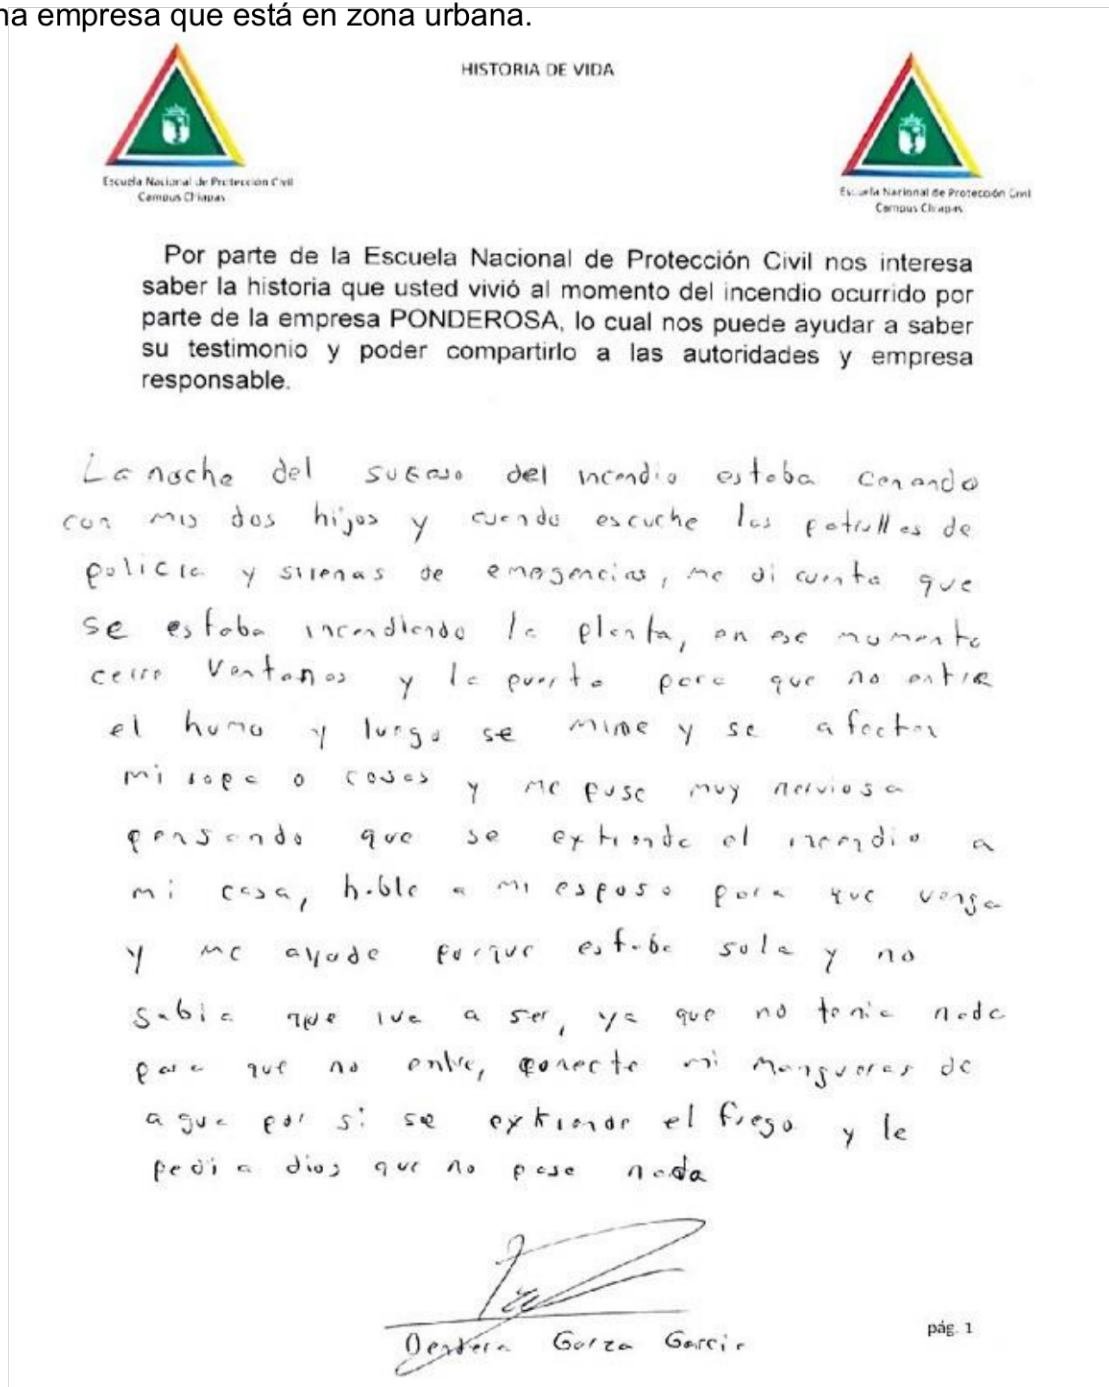 na empresa que está en zona urbana.
HISTORIA DE VIDA
Escuela Nacional de Protección Civil
Campus Chiapas
Escuela Nacional de Protección Civil
Campus Chiapas
Por parte de la Escuela Nacional de Protección Civil nos interesa
saber la historia que usted vivió al momento del incendio ocurrido por
parte de la empresa PONDEROSA, lo cual nos puede ayudar a saber
su testimonio y poder compartirlo a las autoridades y empresa
responsable.
La noche del suceso del incendio estaba cenando
con mis dos hijos y cuando escuche las patrullas de
policia y sirenas de emegencias, me di cuenta que
se estaba incendiendo la planta, en ese momento
cerre ventanas y la puerta para que no entre
el humo y luego se y se afecten
mi ropa o cosas y me puse muy nerviosa
pensando que se extiende el incendio a
mi casa, hable a mi esposo para que venga
y me ayude porque estaba sola y no
sabia que iva a ser, ya que no tenia nada
para que no entre, conecte mi mangueras de
agua por si se extiende el fuego y le
pedi a dios que no pase nada
Garza Garcia
pág. 1